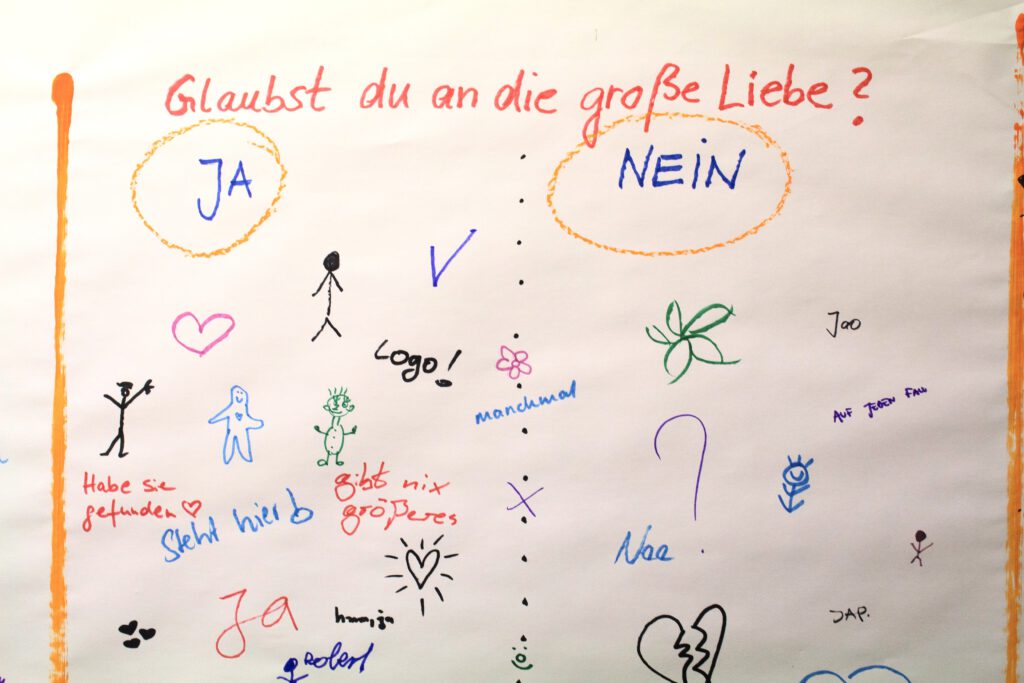 Glaubst du an die große Liebe?
JA
NEIN
Logo!
Jao
manchmal
AUF JEDEN FALL
Habe sie
gefunden
gibt nix
größeres
Steht hier
?
Naa
Ja
hmm, ja
JAP.
Robert